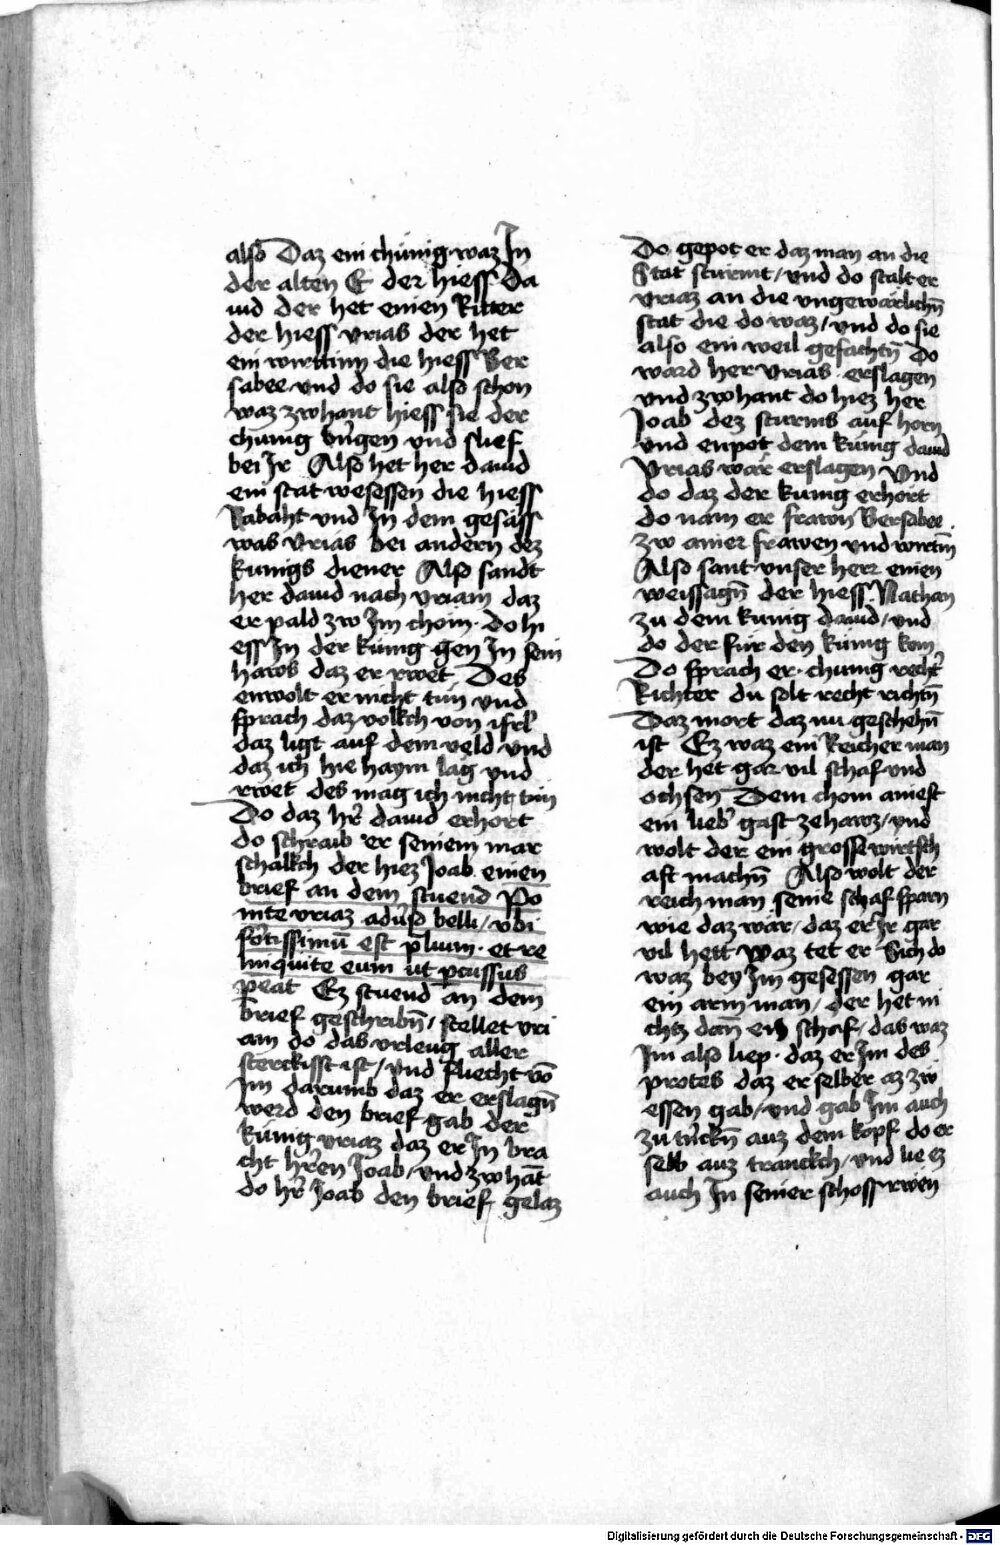 also Daz ein chünig waz In
der alten E der hiess Da
uid der het einen Ritter
der hiess vrias der het
ein wirttinn die hiess Ber
sabee vnd do sie also schon
waz zwhant hiess sie der
chunig bringen vnd slief
bei Ir Also het her dauid
ein stat wesessen die hiess
Rabaht vnd In dem gesäss
was vrias bei andern dez
kunigs diener Also sandt
her dauid nach vriam daz
er pald zw Im chöm. do hi
ess In der künig gen In sein
haws daz er rwet Des
enwolt er nicht tun vnd
sprach daz volkch von isrl
daz ligt auf dem veld vnd
daz ich hie haym lag vnd
rwet des mag ich nicht tün
Do daz hr̄ dauid erhort
do schraib er seinem mar
schalkch der hiez Joab einen
brief an dem stuend Po
nite vriaz aduso belli / vbi
fortissimū est plium · et re
linquite eum ut pcussus
peat Ez stuend an dem
brief geschribn̄ / stellet vri
am do das vrleug aller
sterckisst ist / vnd fliecht vō
Im darumb daz er erslagn̄
werd den brief gab der
künig vriaz daz er In bra
cht hr̄en Joab / vnd zwhāt
do hr̄ Joab den brief gelaz
Do gepot er daz man an die
Stat sturmt / vnd do stalt er
vriaz an die vngewärlichn̄
stat die do waz / vnd do sie
also ein weil gefachtn̄ Do
ward her vrias erslagen
vnd zwhant do hiez her
Joab dez sturms auf horn
vnd enpot dem künig dauid
Vrias wär erslagen Vnd
do daz der kunig erhort
do nam er frawn Bersabee.
zw ainer frawen vnd wirtin̄
Also sant vnser herr einen
weissagn̄ der hiess Nathan
zu dem kunig dauid / vnd
do der für den künig kom
Do sprach er · chunig recht̄
Richter du solt recht richtn̄
Daz mort daz nu geschehn̄
ist Ez waz ein Reicher man
der het gar vil schaf vnd
ochsen Dem chom ainest
ein lieb̄ gast ze hawz / vnd
wolt der ein grosse wirtsch
aft machn̄ Also wolt der
reich man seine schaf sparn
wie daz wär / daz er Ir gar
vil hett Waz tet er Sich do
waz bey Im gesessen gar
ein arm man / der het ni
chtz dan̄ ein schaf / das waz
Im also liep · daz er Im des
protes daz er selber az zw
essen gab / vnd gab Im auch
zu trickn̄ auz dem kopf do er
selb auz tranckch / vnd lie ez
auch In seiner schoss rwen
Digitalisierung gefördert durch die Deutsche Forschungsgemeinschaft - DFG